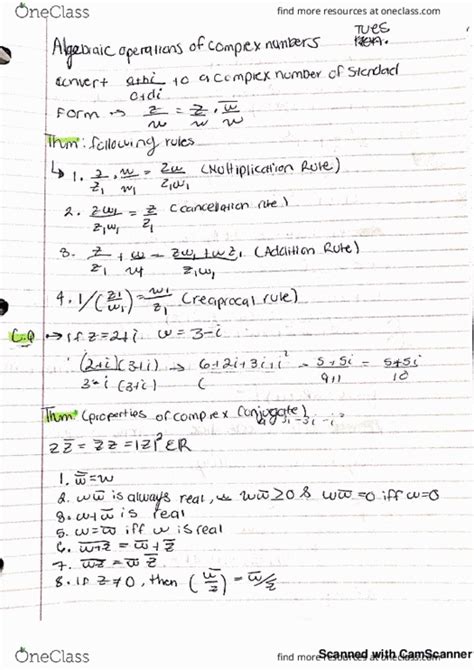 OneClass
find more resources at oneclass.com
Algebraic operations of complex numbers
TUES
convert a+bi / c+di to a complex number of standard
Form → z/w = z/w · w̅/w̅
Thm: following rules
↳ 1. z/z₁ · w/w₁ = zw/z₁w₁ (Multiplication Rule)
2. zw₁/z₁w₁ = z/z₁ (cancellation rule)
3. z/z₁ + w/w₁ = zw₁+wz₁/z₁w₁ (Addition Rule)
4. 1/(z₁/w₁) = w₁/z₁ (reciprocal rule)
e.g → if z=2+i, w=3-i
(2+i)(3+i) → 6+2i+3i+i² = 5+5i = 5+5i
3-i (3+i) 9+1 10
Thm: (properties of complex conjugate)
z z̅ = z̅ z = |z|² ∈ R
1. w̿ = w
2. ww̅ is always real, ww̅ ≥ 0 & ww̅ = 0 iff w=0
3. w+w̅ is real
5. w=w̅ iff w is real
6. w+z = w̅ + z̅
7. wz = w̅ z̅
8. if z ≠ 0, then (w/z) = w̅/z̅
OneClass
find more resources at oneclass.com
Scanned with CamScanner